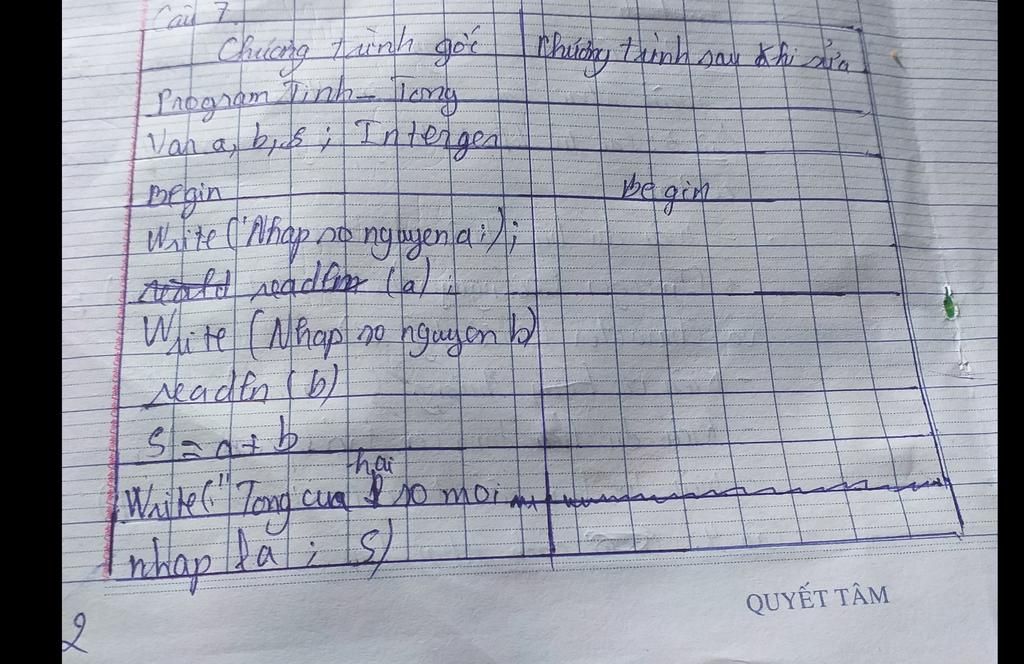 Câu 7.
Chương trình gốc Chương trình sau khi sửa
Program Tinh_Tong
Var a, b, s ; Interger
Begin Begin
Write ('Nhap so nguyen a:');
readln (a);
Write (Nhap so nguyen b)
readln (b)
S = a + b
hai
Write(" Tong cua so moi
nhap la ; S)
QUYẾT TÂM
2